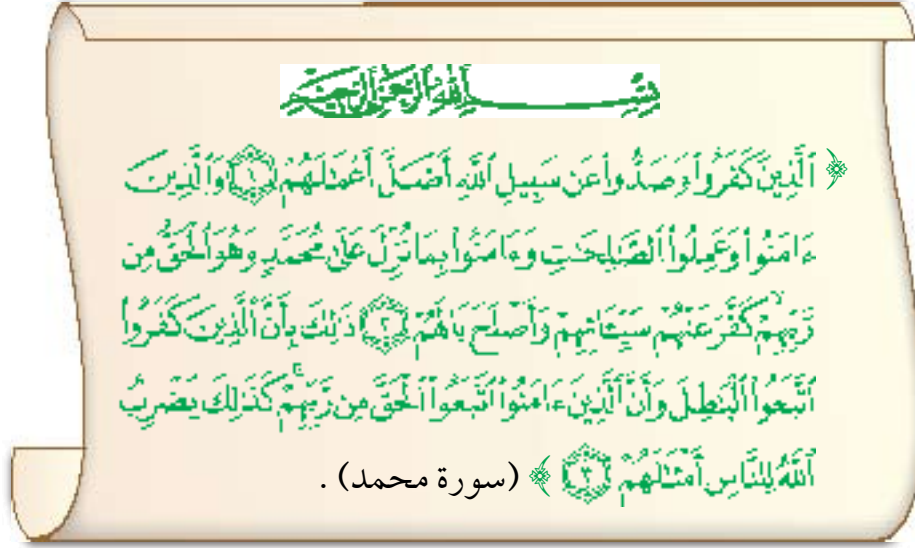 بِسْمِ اللَّهِ الرَّحْمَٰنِ الرَّحِيمِ
﴿ ٱلَّذِينَ كَفَرُواْ وَصَدُّواْ عَن سَبِيلِ ٱللَّهِ أَضَلَّ أَعْمَٰلَهُمْ ١ وَٱلَّذِينَ
ءَامَنُواْ وَعَمِلُواْ ٱلصَّٰلِحَٰتِ وَءَامَنُواْ بِمَا نُزِّلَ عَلَىٰ مُحَمَّدٍ وَهُوَ ٱلْحَقُّ مِن
رَّبِّهِمْ ۙ كَفَّرَ عَنْهُمْ سَيِّـَٔاتِهِمْ وَأَصْلَحَ بَالَهُمْ ٢ ذَٰلِكَ بِأَنَّ ٱلَّذِينَ كَفَرُواْ
ٱتَّبَعُواْ ٱلْبَٰطِلَ وَأَنَّ ٱلَّذِينَ ءَامَنُواْ ٱتَّبَعُواْ ٱلْحَقَّ مِن رَّبِّهِمْ ۚ كَذَٰلِكَ يَضْرِبُ
ٱللَّهُ لِلنَّاسِ أَمْثَٰلَهُمْ ٣ ﴾ (سورة محمد) .